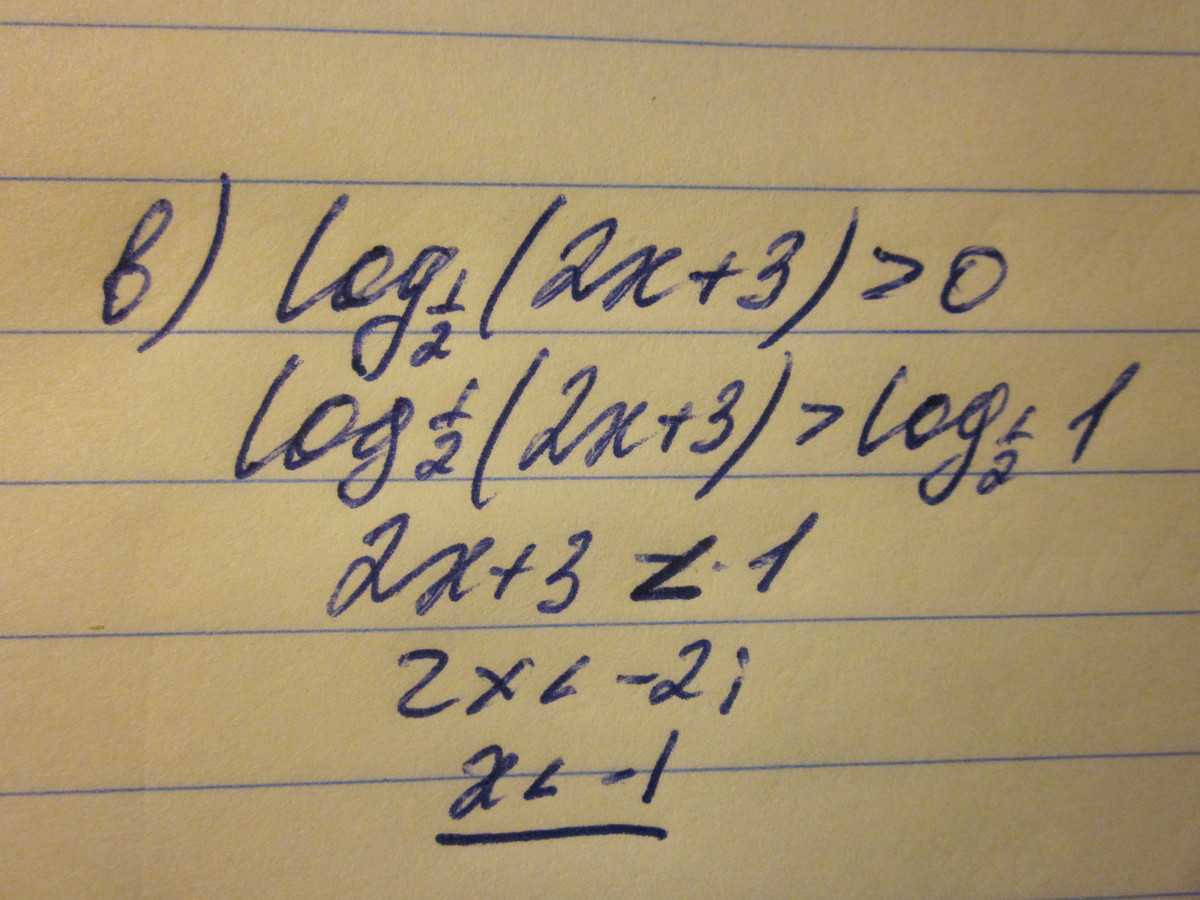 в) log½(2x+3)>0
log½(2x+3)>log½ 1
2x+3 < 1
2x < -2;
x < -1